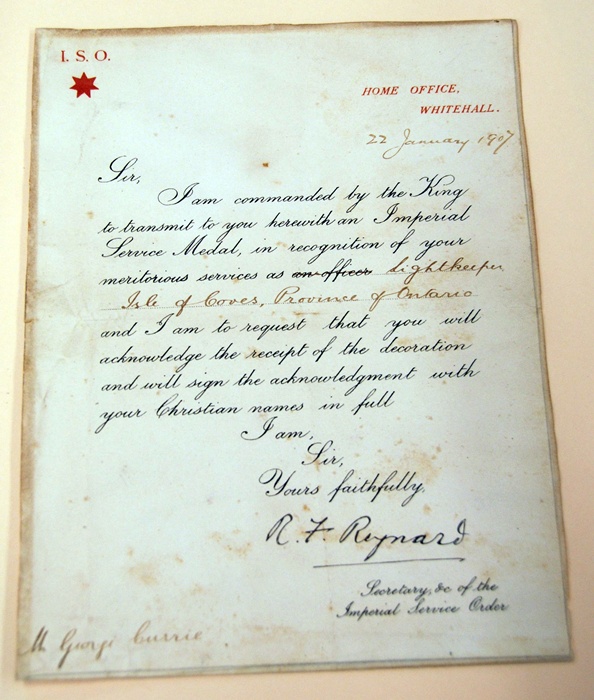 I. S. O.
HOME OFFICE,
WHITEHALL.
22 January 1907
Sir,
I am commanded by the King
to transmit to you herewith an Imperial
Service Medal, in recognition of your
meritorious services as an officer Lightkeeper
Isle of Coves, Province of Ontario
and I am to request that you will
acknowledge the receipt of the decoration
and will sign the acknowledgment with
your Christian names in full
I am,
Sir,
Yours faithfully,
R. F. Reynard
Secretary, &c of the
Imperial Service Order
George Currie